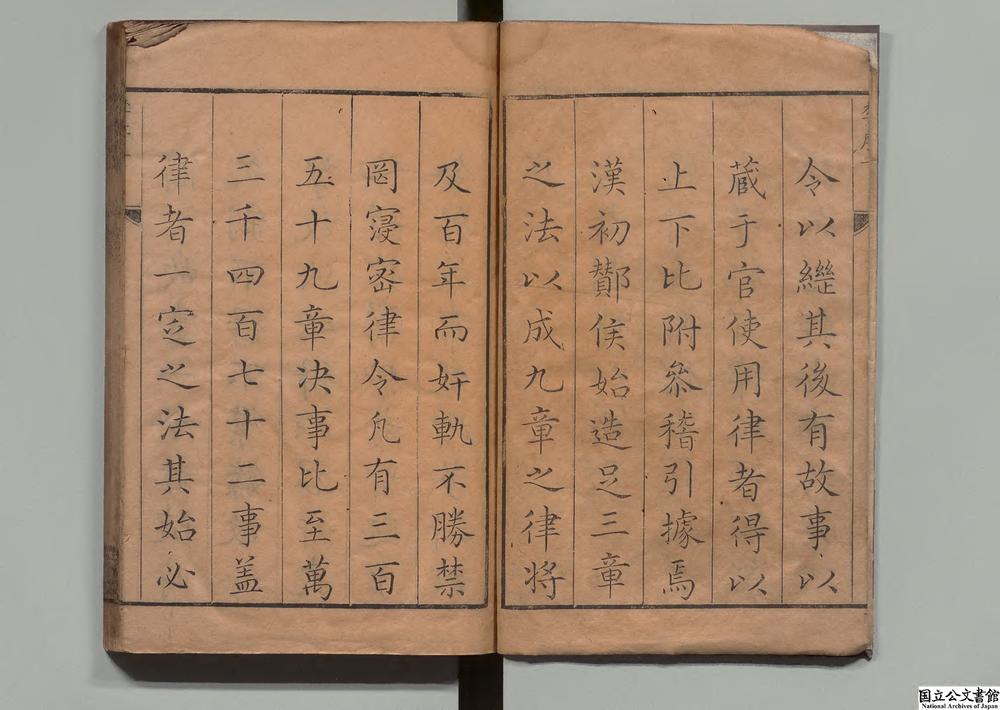 令以繼其後有故事以
蔵于官使用律者得以
上下比附叅稽引據焉
漢初酇侯始造足三章
之法以成九章之律将
及百年而奸軌不勝禁
罔寖宻律令凡有三百
五十九章决事比至萬
三千四百七十二事盖
律者一定之法其始必
国立公文書館
National Archives of Japan